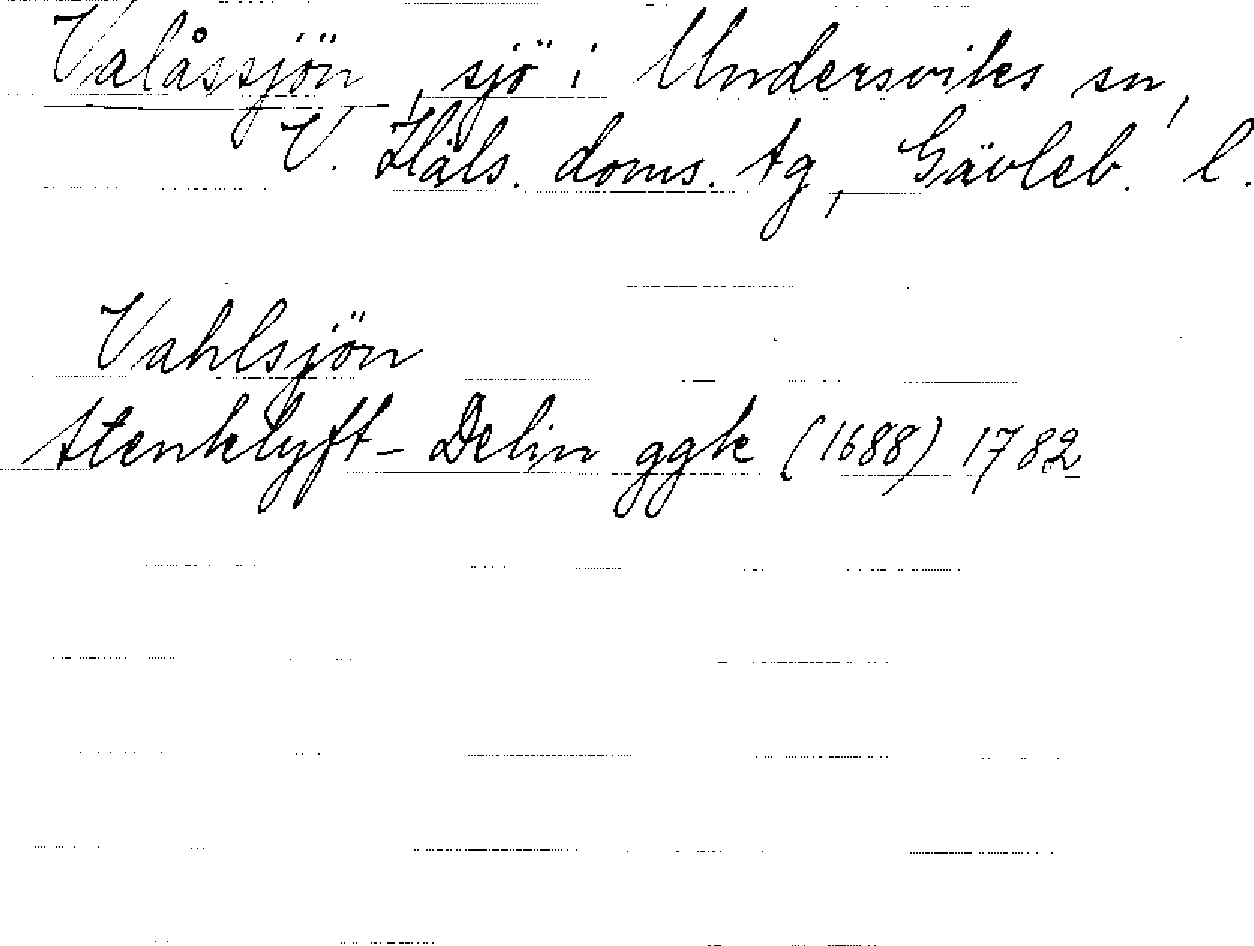 Valåssjön, sjö i Undersviks sn,
V. Häls. doms. tg, Gävleb. l.
Vahlsjön
Stenklyft-Delin ggk (1688) 1782